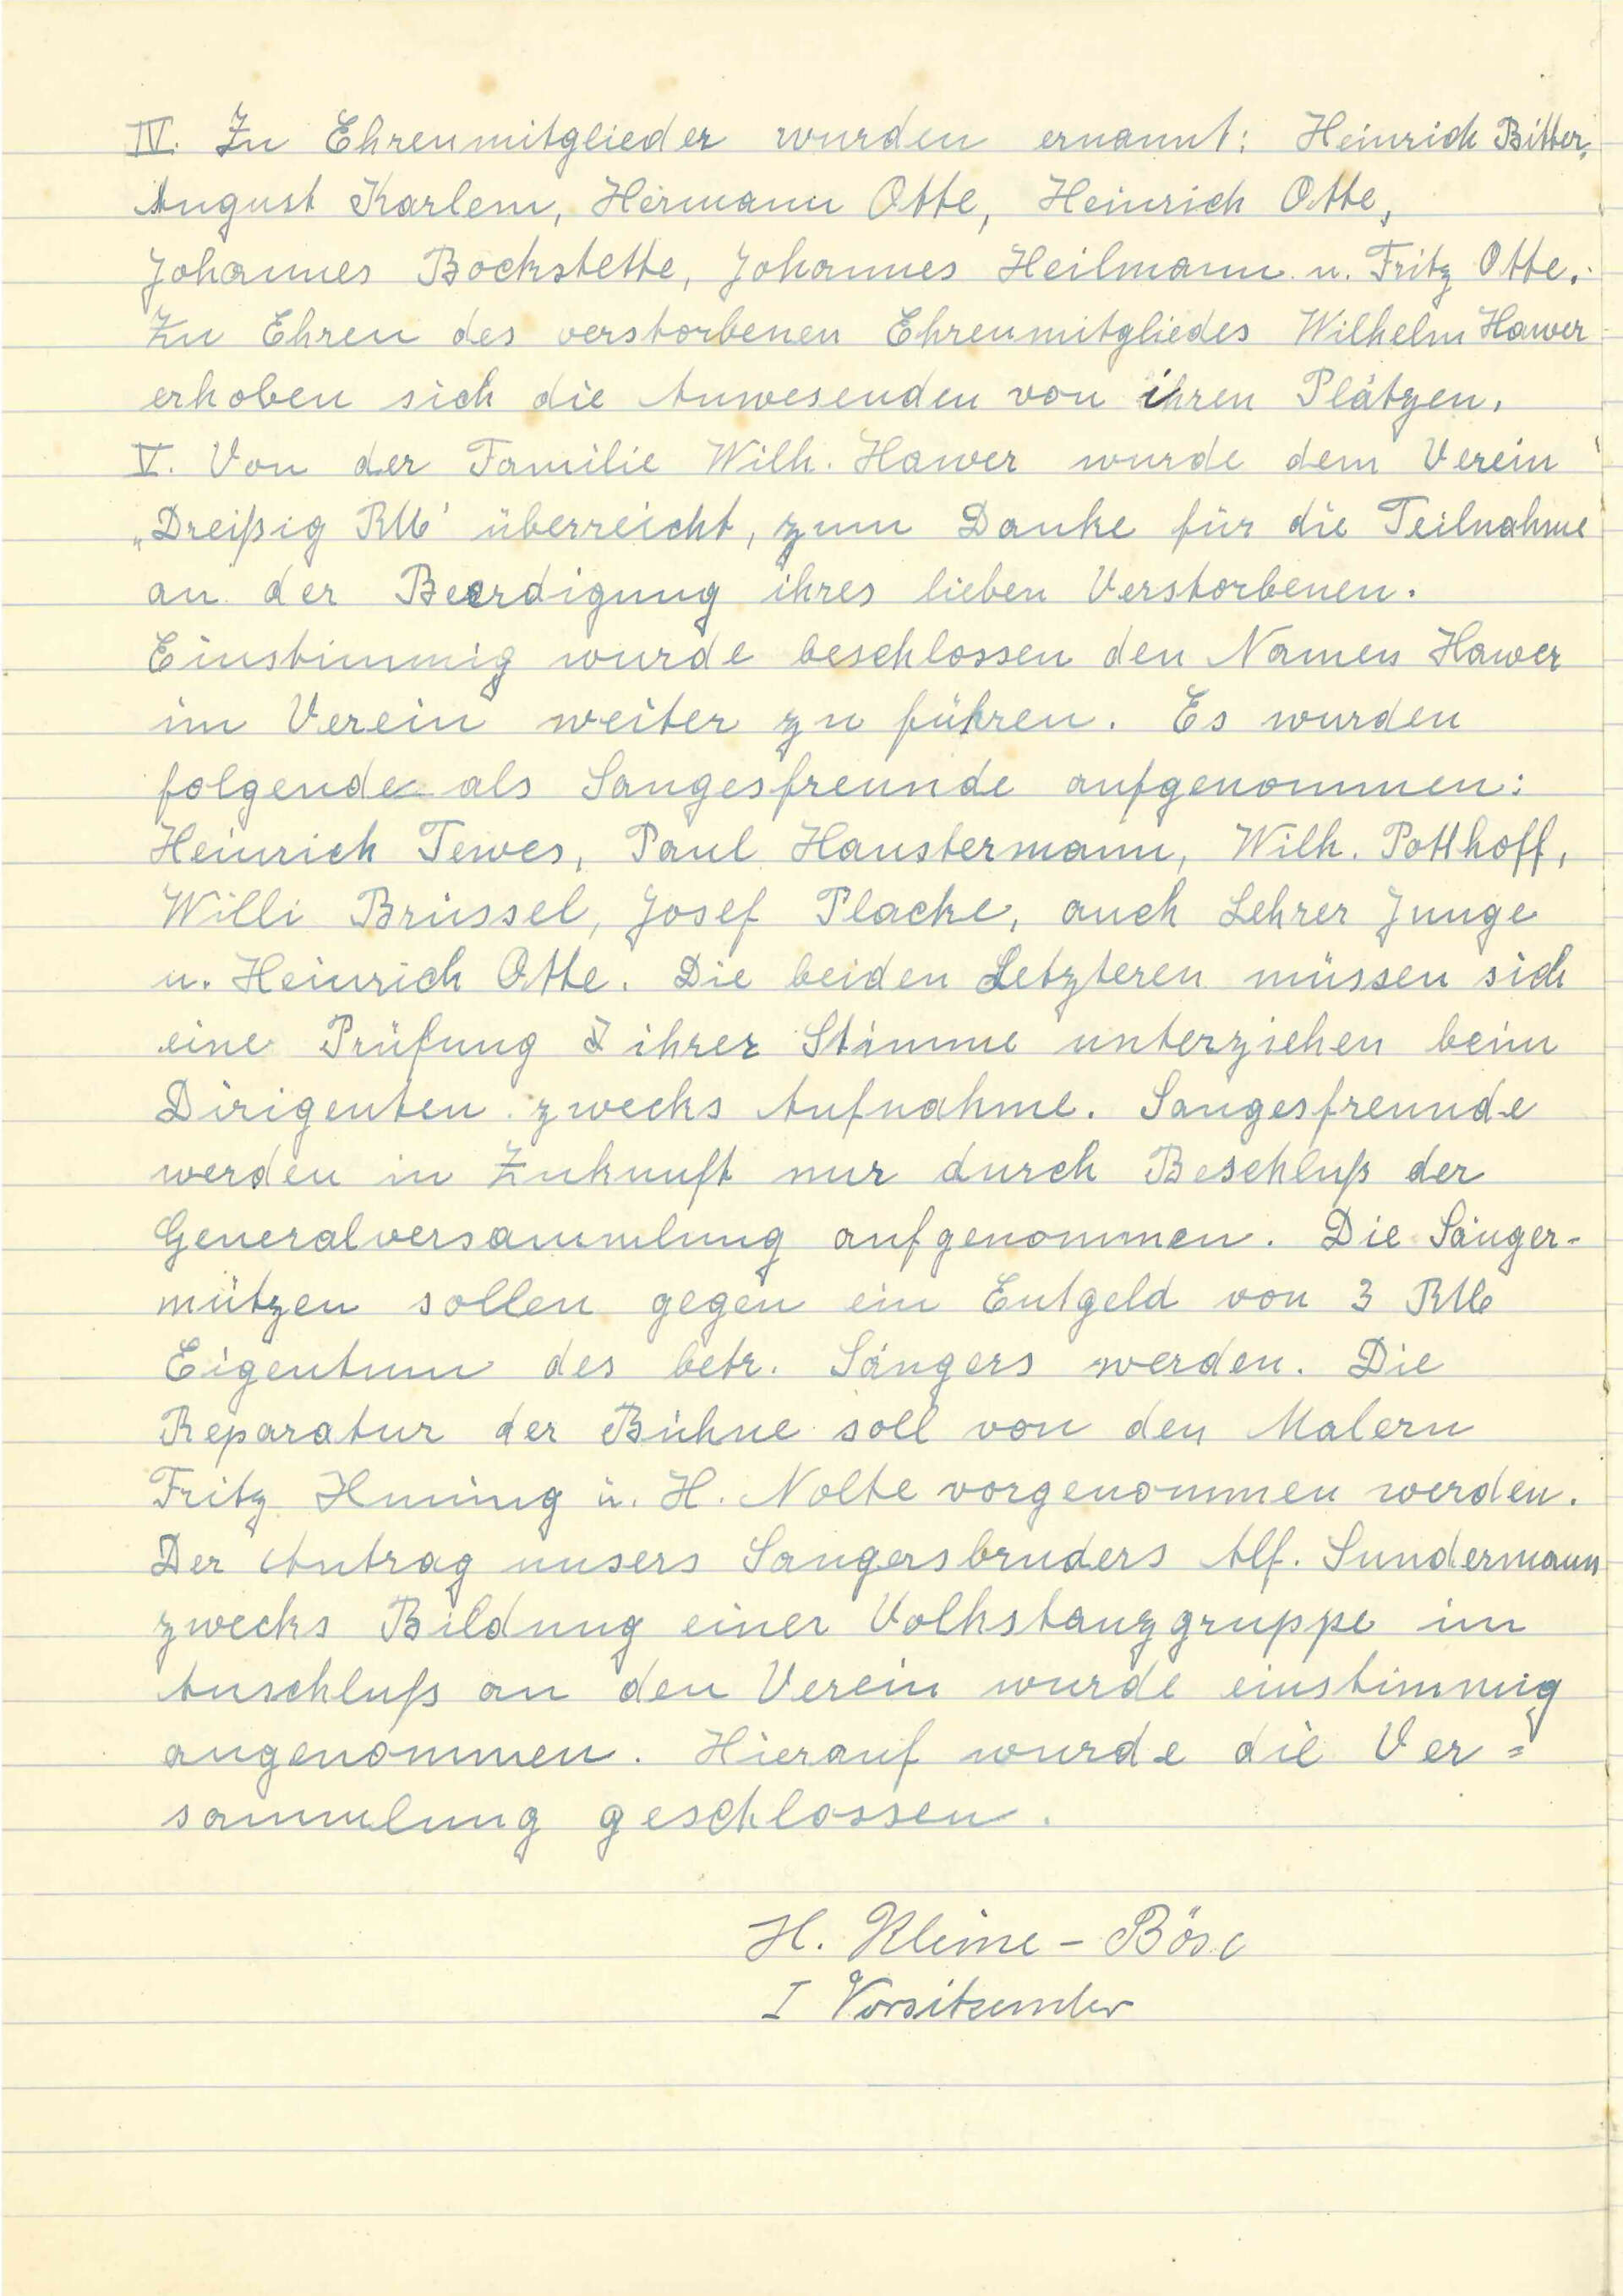 IV. Zu Ehrenmitglieder wurden ernannt: Heinrich Bitter,
August Karlem, Hermann Otte, Heinrich Otte,
Johannes Bockstette, Johannes Heilmann u. Fritz Otte.
Zu Ehren des verstorbenen Ehrenmitgliedes Wilhelm Hawer
erhoben sich die Anwesenden von ihren Plätzen.
V. Von der Familie Wilh. Hawer wurde dem Verein
„Dreißig RM' überreicht, zum Danke für die Teilnahme
an der Beerdigung ihres lieben Verstorbenen.
Einstimmig wurde beschlossen den Namen Hawer
im Verein weiter zu führen. Es wurden
folgende als Sangesfreunde aufgenommen:
Heinrich Tewes, Paul Haustermann, Wilh. Potthoff,
Willi Brüssel, Josef Placke, auch Lehrer Junge
u. Heinrich Otte. Die beiden Letzteren müssen sich
eine Prüfung ihrer Stimme unterziehen beim
Dirigenten zwecks Aufnahme. Sangesfreunde
werden in Zukunft nur durch Beschluß der
Generalversammlung aufgenommen. Die Sänger-
mützen sollen gegen ein Entgeld von 3 RM
Eigentum des betr. Sängers werden. Die
Reparatur der Bühne soll von den Malern
Fritz u. H. Nolte vorgenommen werden.
Der Antrag unsers Sangersbruders Alf. Sundermann
zwecks Bildung einer Volkstanzgruppe im
Anschluß an den Verein wurde einstimmig
angenommen. Hierauf wurde die Ver=
sammlung geschlossen.
H. Kleine-Böse
I Vorsitzender